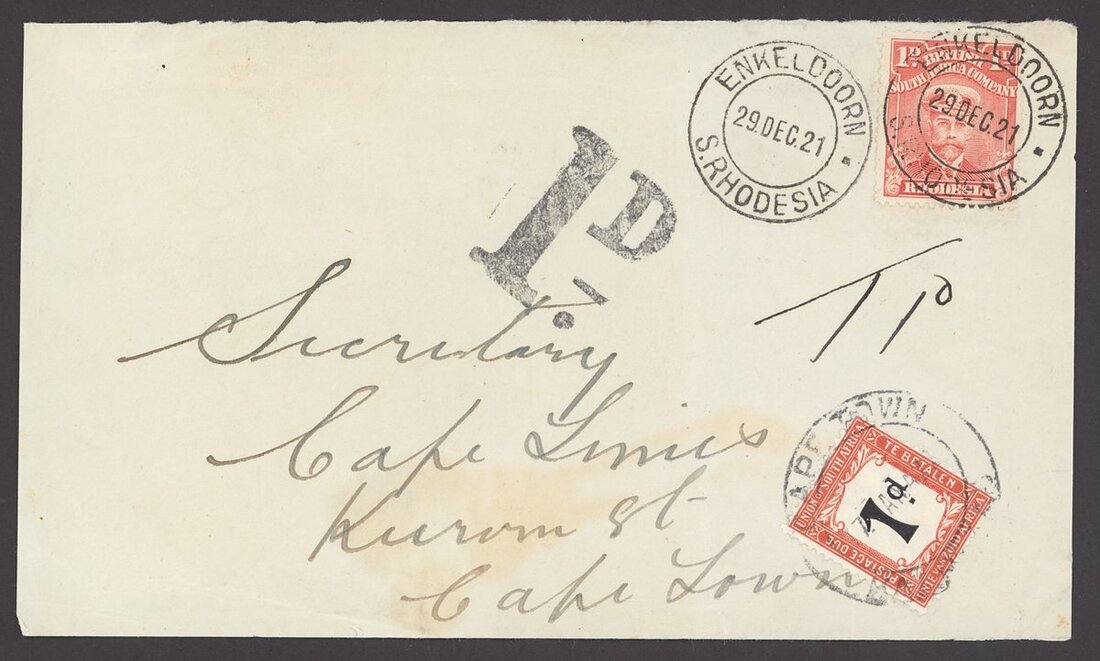 ENKELDOORN
29.DEC.21
S.RHODESIA
ENKELDOORN
29.DEC.21
S.RHODESIA
1D BRITISH 1D
SOUTH AFRICA COMPANY
RHODESIA
1D.
T 1D
Secretary
Cape Times
Keerom St
Cape Town
CAPE TOWN
TE BETALEN
UNION OF SOUTH AFRICA
1d.
UNIE VAN ZUID AFRIKA
POSTAGE DUE